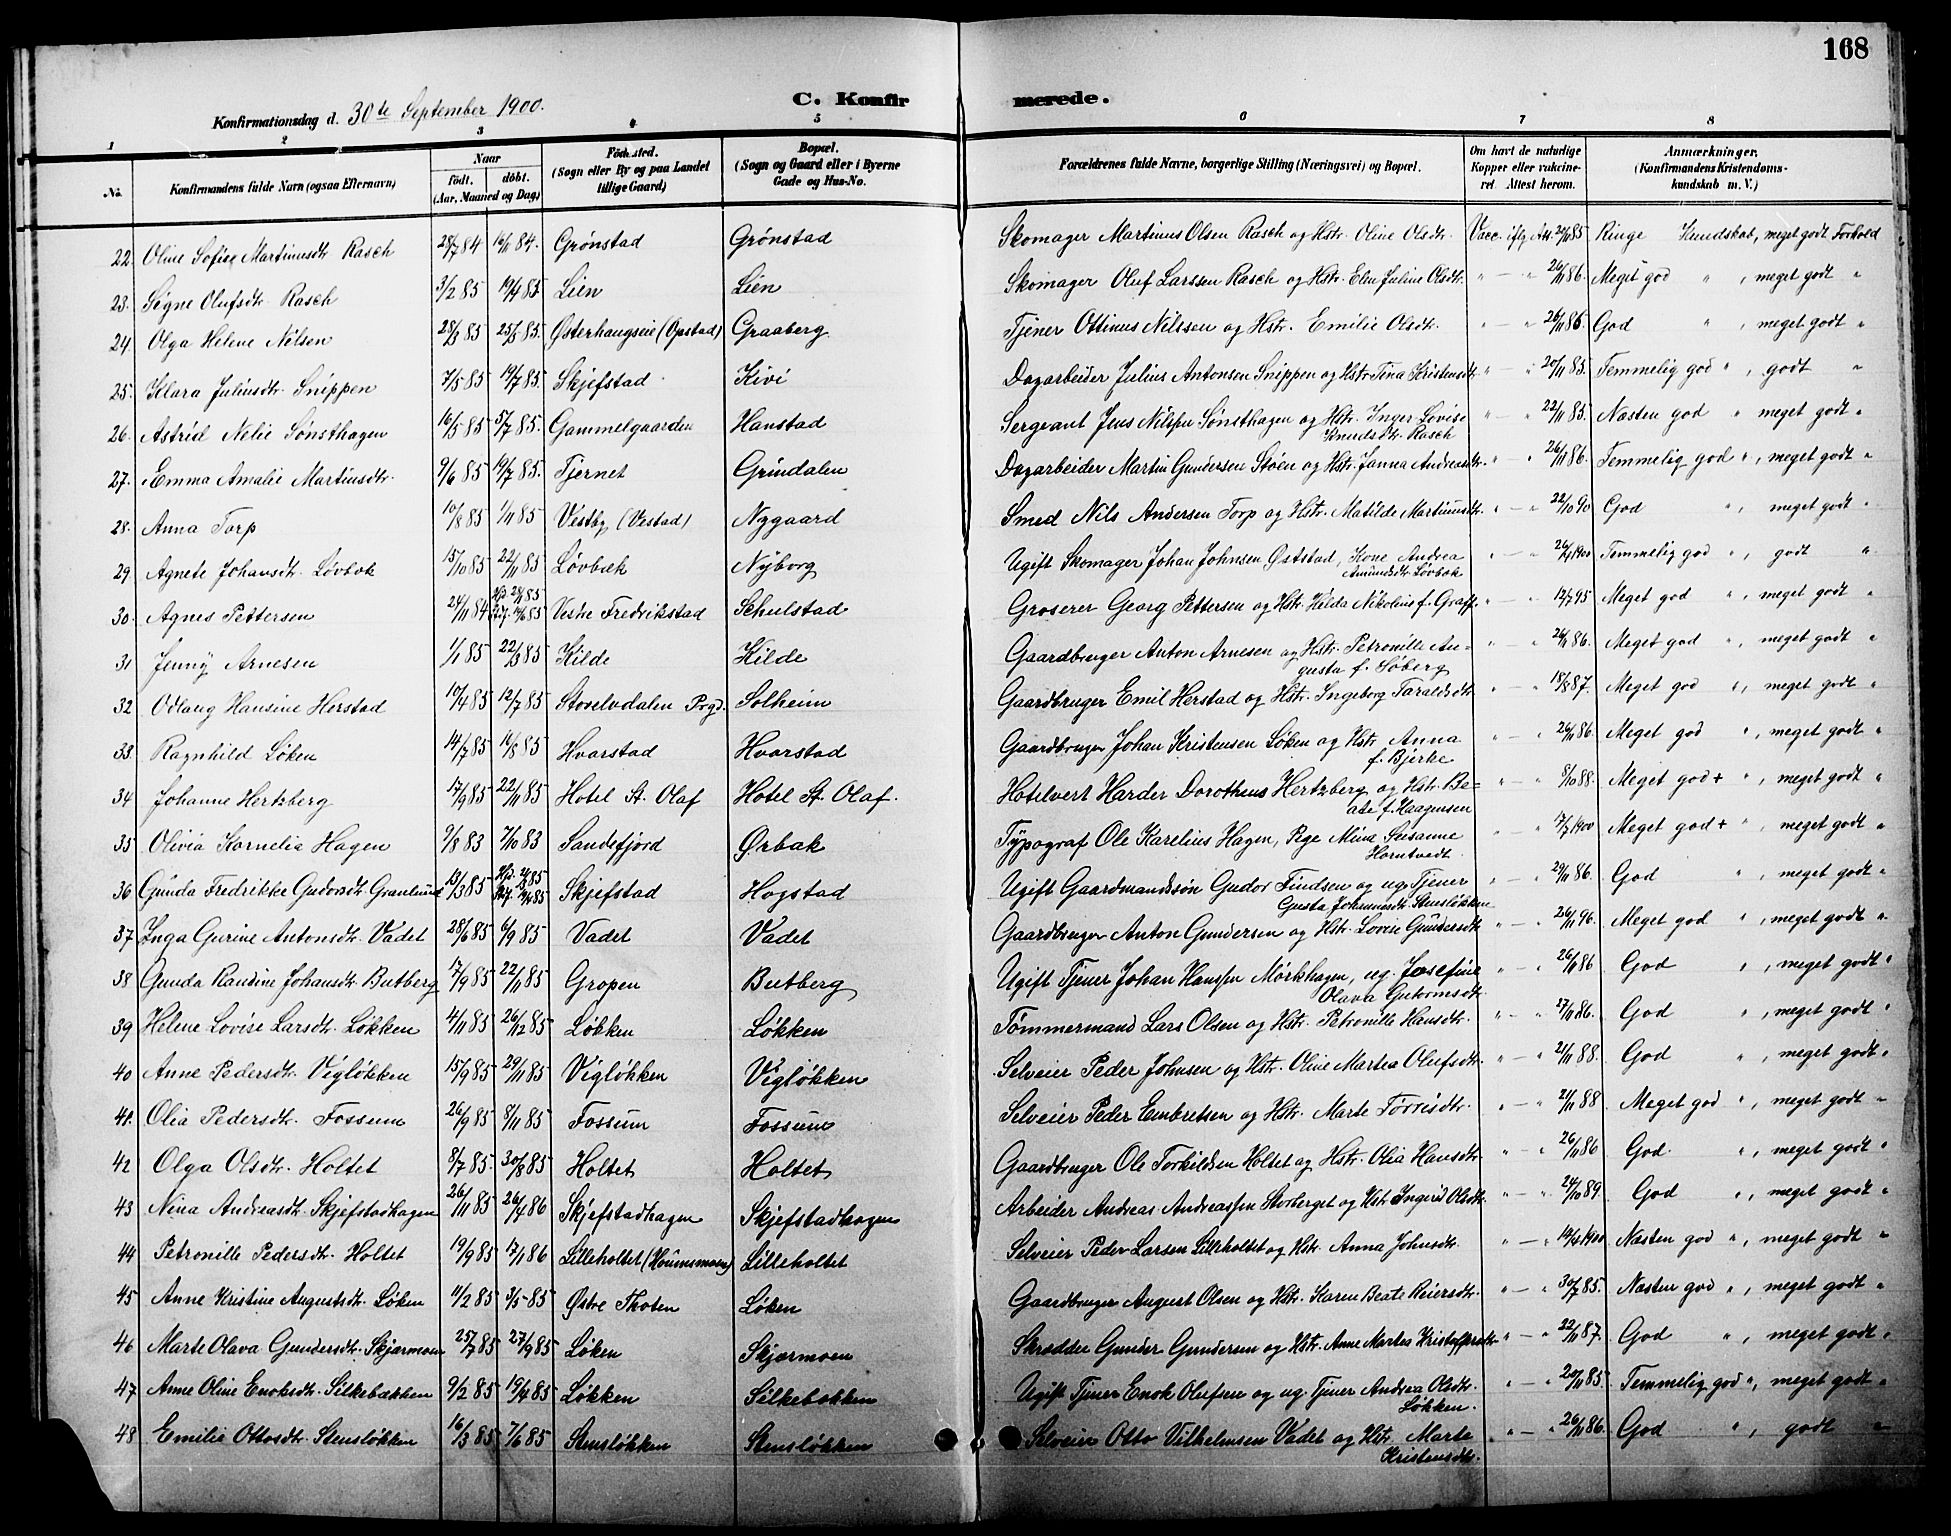 168
C. Konfirmerede.
Konfirmationsdag d. 30te September 1900.
1 2 3 4 5 6 7 8
No. Konfirmandens fulde Navn (ogsaa Efternavn) Naar födt. döbt. (Aar, Maaned og Dag) Födested. (Sogn eller By og paa Landet tillige Gaard) Bopæl. (Sogn og Gaard eller i Byerne Gade og Hus-No.) Forældrenes fulde Navne, borgerlige Stilling (Næringsvei) og Bopæl. Om havt de naturlige Kopper eller vakcineret. Attest herom. Anmærkninger. (Konfirmandens Kristendomskundskab m. V.)
22. Oline Sofie Martinusdtr. Rasch 28/7 84 16/11 84. Grønstad Grønstad Skomager Martinus Olsen Rasch og Hstr. Oline Olsdtr. Vacc. iflg. Att. 20/11 85 Ringe Kundskab, meget godt Forhold
23. Signe Olufsdtr. Rasch 3/2 85 19/4 85 Lien Lien Skomager Oluf Larssen Rasch og Hstr. Elen Juline Olsdtr. " — " 26/11 86. Meget god " , meget godt "
24. Olga Helene Nilsen 28/3 85 25/5 85. Østerhaugseie (Opstad) Graaberg Tjener Ottinus Nilssen og Hstr. Emilie Olsdtr. " — " 26/11 86. God " , meget godt "
25. Klara Juliusdtr. Snippen 7/5 85 19/7 85. Skjefstad Kivi Dagarbeider Julius Antonsen Snippen og Hstr. Tina Kristensdtr. " — " 20/11 85. Temmelig god " , godt "
26. Astrid Nelie Sønsthagen 16/5 85 5/7 85. Gammelgaarden Hanstad Sergeant Jens Nilsen Sønsthagen og Hstr. Inger Lovise Knudsdtr. Rasch " — " 22/11 85. Næsten god " , meget godt "
27. Emma Amalie Martinsdtr. 9/6 85 19/7 85. Tjernet Grindalen Dagarbeider Martin Gundersen Støen og Hstr. Janna Andreasdtr. " — " 26/11 86. Temmelig god " , meget godt "
28. Anna Torp 10/8 85 1/11 85 Vestby (Vestad) Nygaard Smed Nils Andersen Torp og Hstr. Matilde Martinusdtr. " — " 22/10 90 God " , meget godt "
29. Agnete Johansdtr. Løvbæk 15/10 85 22/11 85 Løvbæk Nyborg Ugift Skomager Johan Johnsen Øststad, Kone Andrea Amundsdtr. Løvbæk " — " Temmelig god " , godt "
30. Agnes Pettersen 24/11 84 Vestre Fredrikstad Schulstad Groserer Georg Pettersen og Hstr. Hilda Nikoline f. Graff. " — " 12/7 95 Meget god " , meget godt "
31 Jenny Arnesen 1/1 85 22/3 85 Kilde Kilde Gaardbruger Anton Arnesen og Hstr. Petronille Augusta f. Søberg " — " 26/11 86. Meget god " , meget godt "
32 Odlaug Hansine Herstad 10/4 85 12/7 85 Storelvdalen Prgd. Solheim Gaardbruger Emil Herstad og Hstr. Ingeborg Taraldsdtr. " — " 18/8 87. Meget god " , meget godt "
33. Ragnhild Løken 14/7 85 16/8 85 Hvarstad Hvarstad Gaardbruger Johan Kristensen Løken og Hstr. Anna f. Bjerke " — " 26/11 86. Meget god " , meget godt "
34 Johanne Hertzberg 17/9 85 22/11 85 Hotel St. Olaf Hotel St. Olaf. Hotelvert Harder Dorotheus Hertzberg og Hstr. Beate f. Haagensen " — " 8/10 88. Meget god + " , meget godt "
35 Olivia Kornelia Hagen 9/8 83 7/10 83 Sandefjord Ørbæk Typograf Ole Karelius Hagen, Pge Mina Susanne Horntvedt " — " 17/7 1900 Meget god + " , meget godt "
36 Gunda Fredrikke Gudorsdtr. Granlund 13/3 85 Skjefstad Hogstad Ugift Gaardmandssøn Gudor Findsen og ug. Tjener Gusta Johannesdtr. Stensløkken " — " 29/11 86. God " , meget godt "
37 Inga Gurine Antonsdtr. Vadet 28/6 85 6/9 85 Vadet Vadet Gaardbruger Anton Gundersen og Hstr. Lovise Gundersdtr. " — " 26/11 96. Meget god " , meget godt "
38 Gunda Randine Johansdtr. Butberg 17/9 85 22/11 85 Gropen Butberg Ugift Tjener Johan Hanssen Mørkhagen, ug. Josefine Olava Gutormsdtr. " — " 26/11 86 God " , meget godt "
39 Helene Lovise Larsdtr. Løkken 4/11 85 26/12 85 Løkken Løkken Tømmermand Lars Olsen og Hstr. Petronille Hansdtr. " — " 27/11 86. God " , meget godt "
40 Anne Pedersdtr. Vigløkken 15/9 85 29/11 85 Vigløkken Vigløkken Selveier Peder Johnsen og Hstr. Oline Martea Olufsdtr. " — " 21/11 88. God " , meget godt "
41. Olia Pedersdtr. Fossum 26/9 85 8/11 85 Fossum Fossum Selveier Peder Embretsen og Hstr. Marte Tørrisdtr. " — " 21/11 88 Meget god " , meget godt "
42 Olga Olsdtr. Holtet 8/7 85. 30/8 85 Holtet Holtet Gaardbruger Ole Torkildsen Holtet og Hstr. Olia Hansdtr. " — " 26/11 86 God. " , meget godt "
43 Nina Andreasdtr. Skjefstadhagen 26/11 85 26/4 86 Skjefstadhagen Skjefstadhagen Arbeider Andreas Andreassen Storberget og Hstr. Ingrid Olsdtr. " — " 24/10 89. God " , meget godt "
44 Petronille Pedersdtr. Holtet 19/9 85 17/1 86 Lilleholtet Lilleholtet Selveier Peder Larsen Lilleholtet og Hstr. Anna Johnsdtr. " — " 19/4 1900 Næsten god " , meget godt "
45 Anne Kristine Augustsdtr. Løken 11/2 85 3/5 85 Østre Thoten Løken Gaardbruger August Olsen og Hstr. Karen Beate Reiersdtr. " — " 30/7 85. Næsten god " , meget godt "
46 Marte Olava Gundersdtr. Skjærmoen 25/7 85 27/9 85 Løken Skjærmoen Skrædder Gunder Gundersen og Hstr. Anne Martea Kristoffersdtr. " — " 22/11 87. God " , meget godt "
47 Anne Oline Enoksdtr. Silkebækken 9/2 85 19/4 85 Løkken Silkebækken Ugift Tjener Enok Olufsen og ug. Tjener Andrea Olsdtr. Løkken. " — " 20/11 85. Temmelig god " , meget godt "
48 Emilie Ottosdtr. Stensløkken 16/3 85 7/6 85 Stensløkken Stensløkken Selveier Otto Vilhelmsen Vadet og Hstr. Marte Kristensdtr. " — " 26/11 86 God " , godt "